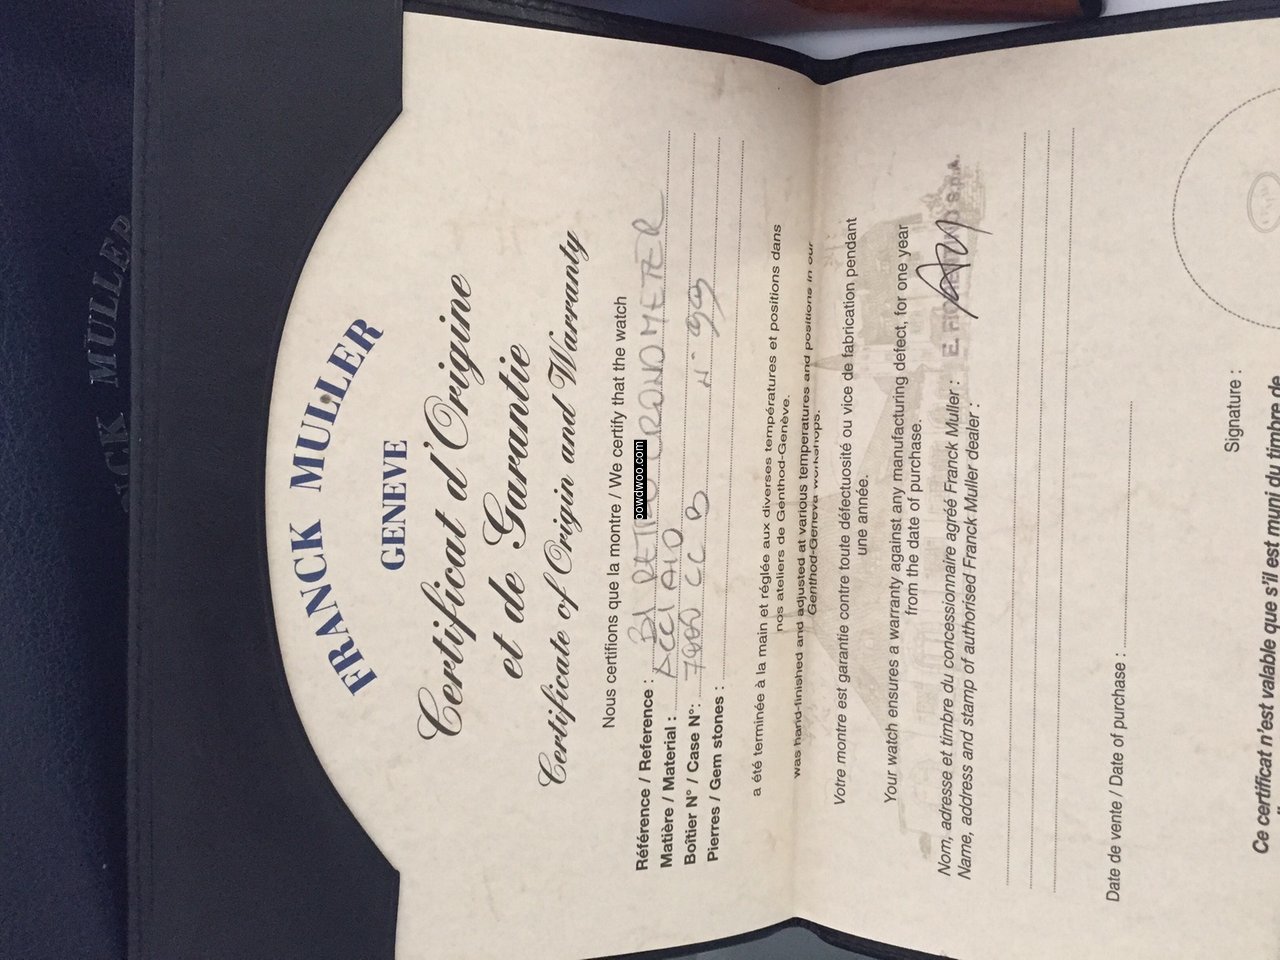 FRANCK MULLER
FRANCK MULLER
GENEVE
Certificat d'Origine
et de Garantie
Certificate of Origin and Warranty
Nous certifions que la montre / We certify that the watch
Référence / Reference : BI RETRO CRONOMETER
Matière / Material : ACCIAIO
Boîtier N° / Case N°: 7000 CC B N° 99
Pierres / Gem stones :
powdwoo.com
a été terminée à la main et réglée aux diverses températures et positions dans
nos ateliers de Genthod-Genève.
was hand-finished and adjusted at various temperatures and positions in our
Genthod-Geneva workshops.
Votre montre est garantie contre toute défectuosité ou vice de fabrication pendant
une année.
Your watch ensures a warranty against any manufacturing defect, for one year
from the date of purchase.
Nom, adresse et timbre du concessionnaire agréé Franck Muller : E. S.p.A.
Name, address and stamp of authorised Franck Muller dealer :
Date de vente / Date of purchase :
Signature :
Ce certificat n'est valable que s'il est muni du timbre de